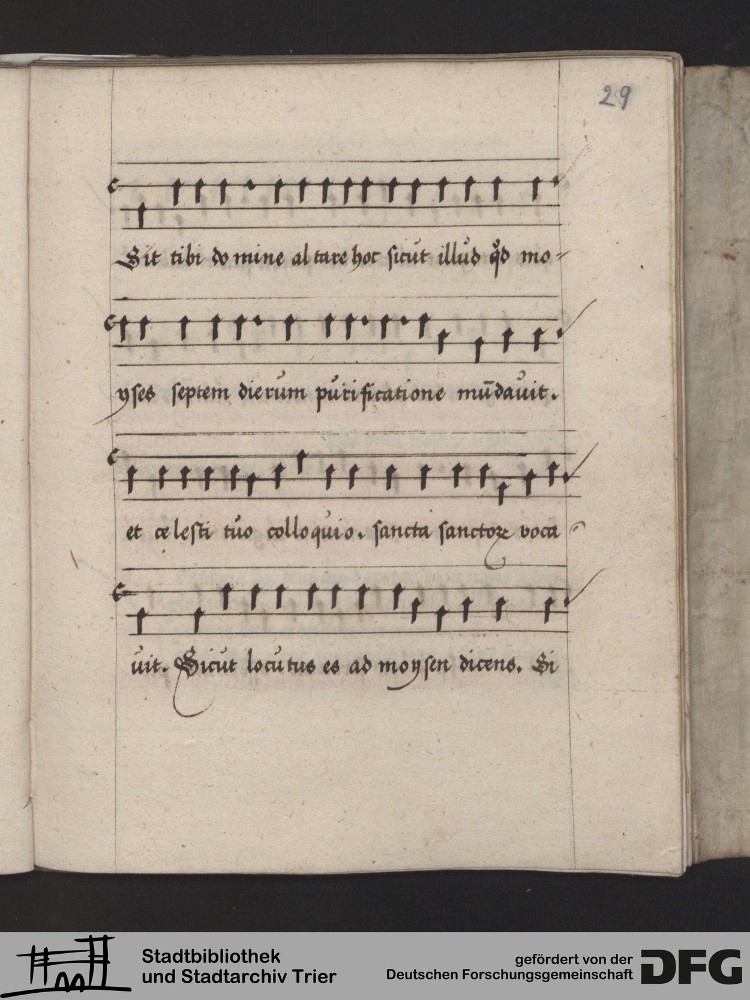 29
Sit tibi do mine al tare hoc sicut illud qd mo-
yses septem dierum purificatione mūdauit.
et ce lesti tuo colloquio. sancta sanctoꝝ voca
uit. Sicut locutus es ad moysen dicens. Si
Stadtbibliothek
und Stadtarchiv Trier
gefördert von der
Deutschen Forschungsgemeinschaft
DFG